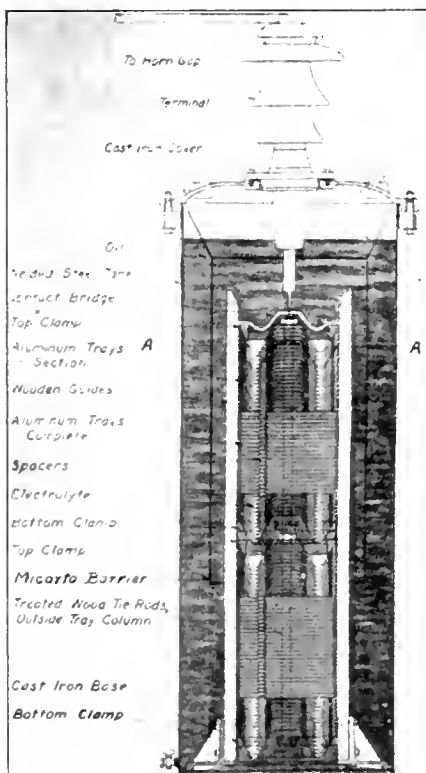 To Horn Gap
Terminal
Cast Iron Cover
Oil
Welded Steel Tank
Contact Bridge
Top Clamp
Aluminum Trays
Section
A
A
Wooden Guides
Aluminum Trays
Complete
Spacers
Electrolyte
Bottom Clamp
Top Clamp
Micarta Barrier
Treated Wood Tie Rods,
Outside Tray Column
Cast Iron Base
Bottom Clamp